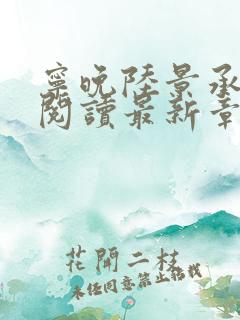 寧晚陸景承
閱讀最新章
花開二枝
未經同意禁止轉載